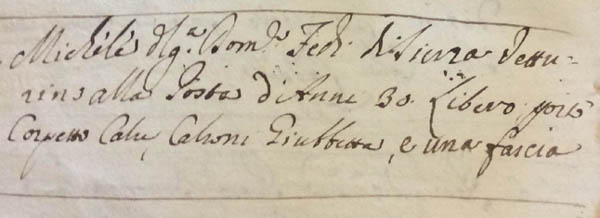 Michele del q.m Dom.co Fedi di Siena Vettu-
rino alla Posta d'Anni 30. Libero portò
Corpetto Calze, Calzoni Giubbetta, e una fascia